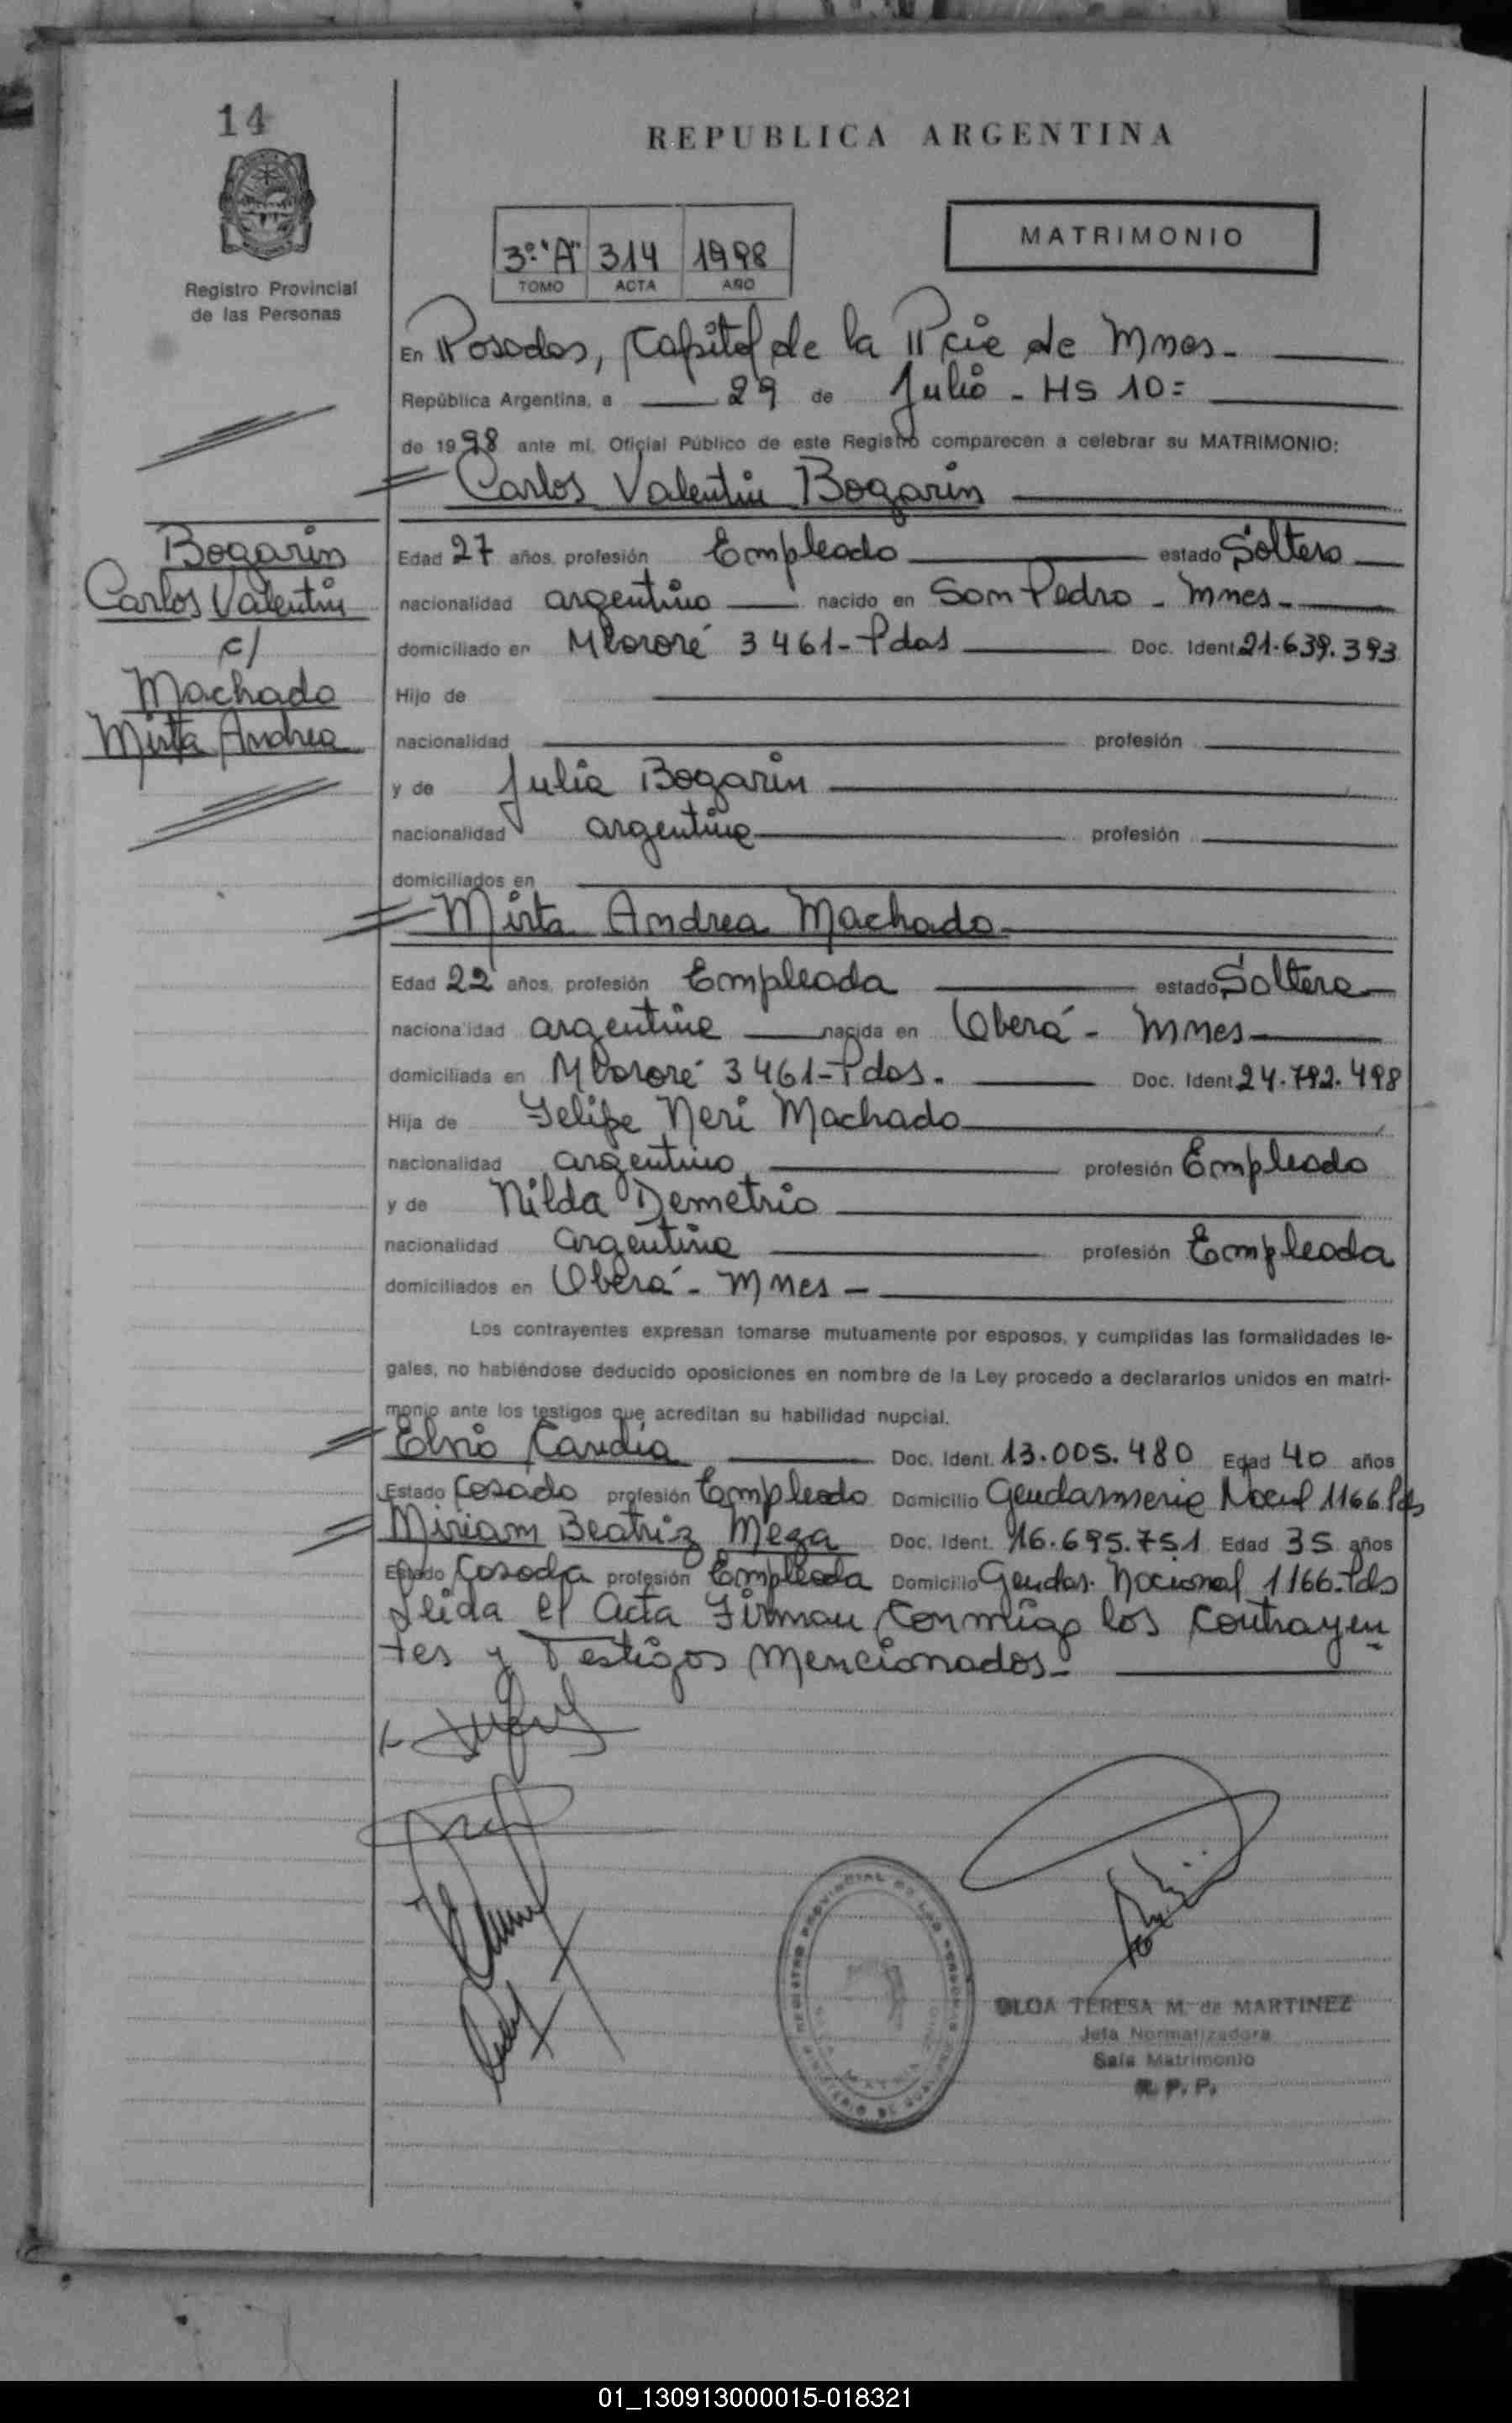 14
REPUBLICA ARGENTINA
MATRIMONIO
3º "A" 314 1998
TOMO ACTA AÑO
Registro Provincial
de las Personas
En Posadas, Capital de la Pcia de Mnes.
República Argentina, a 29 de Julio - HS 10=
de 1998 ante mí, Oficial Público de este Registro comparecen a celebrar su MATRIMONIO:
Carlos Valentin Bogarin
Bogarin
Carlos Valentin
c/
Machado
Mirta Andrea
Edad 27 años, profesión Empleado estado Soltero
nacionalidad argentino nacido en San Pedro - Mnes -
domiciliado en Mbororé 3461 - Pdas Doc. Ident. 21.639.393
Hijo de
nacionalidad profesión
y de Julia Bogarin
nacionalidad argentina profesión
domiciliados en
Mirta Andrea Machado
Edad 22 años, profesión Empleada estado Soltera
nacionalidad argentina nacida en Oberá - Mnes
domiciliada en Mbororé 3461 - Pdas. Doc. Ident. 24.792.498
Hija de Felipe Neri Machado
nacionalidad argentino profesión Empleado
y de Nilda Demetrio
nacionalidad argentina profesión Empleada
domiciliados en Oberá - Mnes -
Los contrayentes expresan tomarse mutuamente por esposos, y cumplidas las formalidades le-
gales, no habiéndose deducido oposiciones en nombre de la Ley procedo a declararlos unidos en matri-
monio ante los testigos que acreditan su habilidad nupcial.
Elvio Candia Doc. Ident. 13.005.480 Edad 40 años
Estado Casado profesión Empleado Domicilio Gendarmeria Nacnl 1166 Pds
Miriam Beatriz Meza Doc. Ident. 16.695.751 Edad 35 años
Estado Casada profesión Empleada Domicilio Gendar. Nacional 1166 - Pds
Leida el Acta Firman conmigo los contrayen
tes y Testigos mencionados -
OLGA TERESA M. de MARTINEZ
Jefa Normatizadora
Sala Matrimonio
R. P. P.
01_130913000015-018321